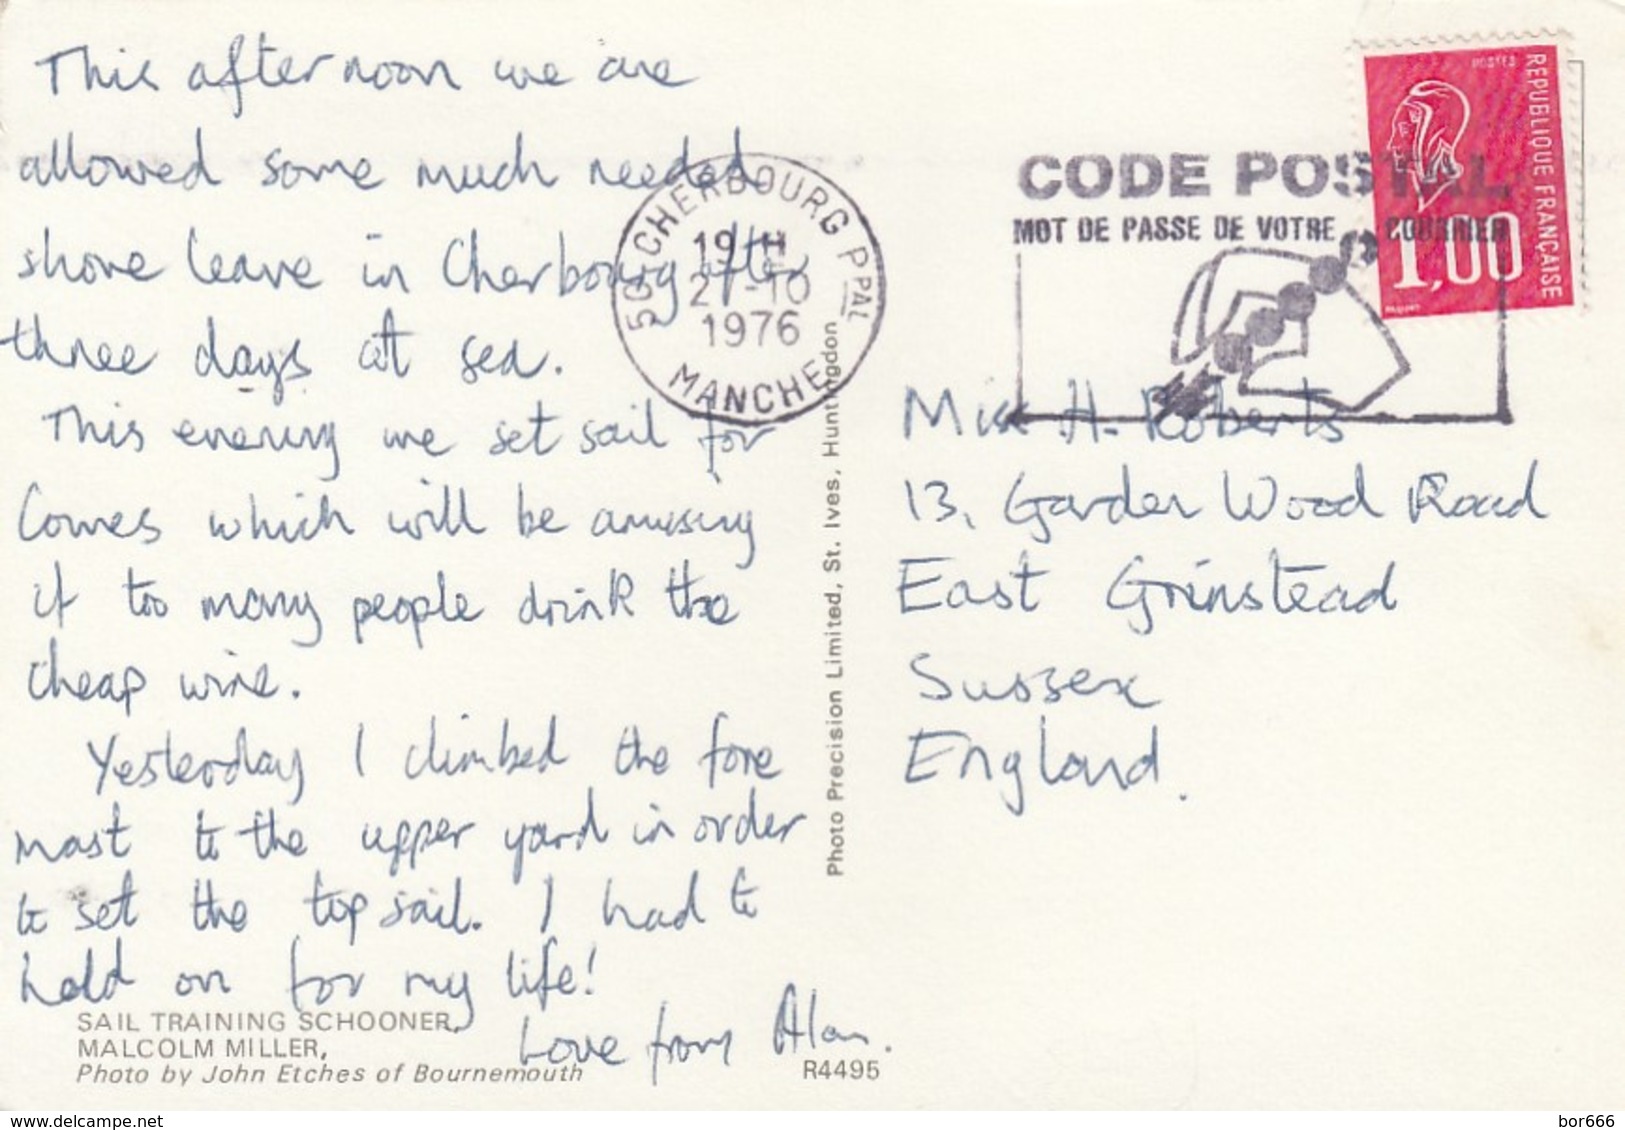 This afternoon we are
allowed some much needed
shore leave in Cherbourg after
three days at sea.
This evening we set sail for
Cowes which will be amusing
if too many people drink the
cheap wine.
Yesterday I climbed the fore
mast to the upper yard in order
to set the topsail. I had to
hold on for my life!
Love from Alan.
SAIL TRAINING SCHOONER,
MALCOLM MILLER,
Photo by John Etches of Bournemouth
R4495
Photo Precision Limited, St. Ives, Huntingdon
50 CHERBOURG PPAL
19 H
-10
1976
MANCHE
CODE POSTAL
MOT DE PASSE DE VOTRE COURRIER
POSTES
REPUBLIQUE FRANÇAISE
1,00
Miss H. Roberts
13, Garden Wood Road
East Grinstead
Sussex
England.
delcampe.net
bor666